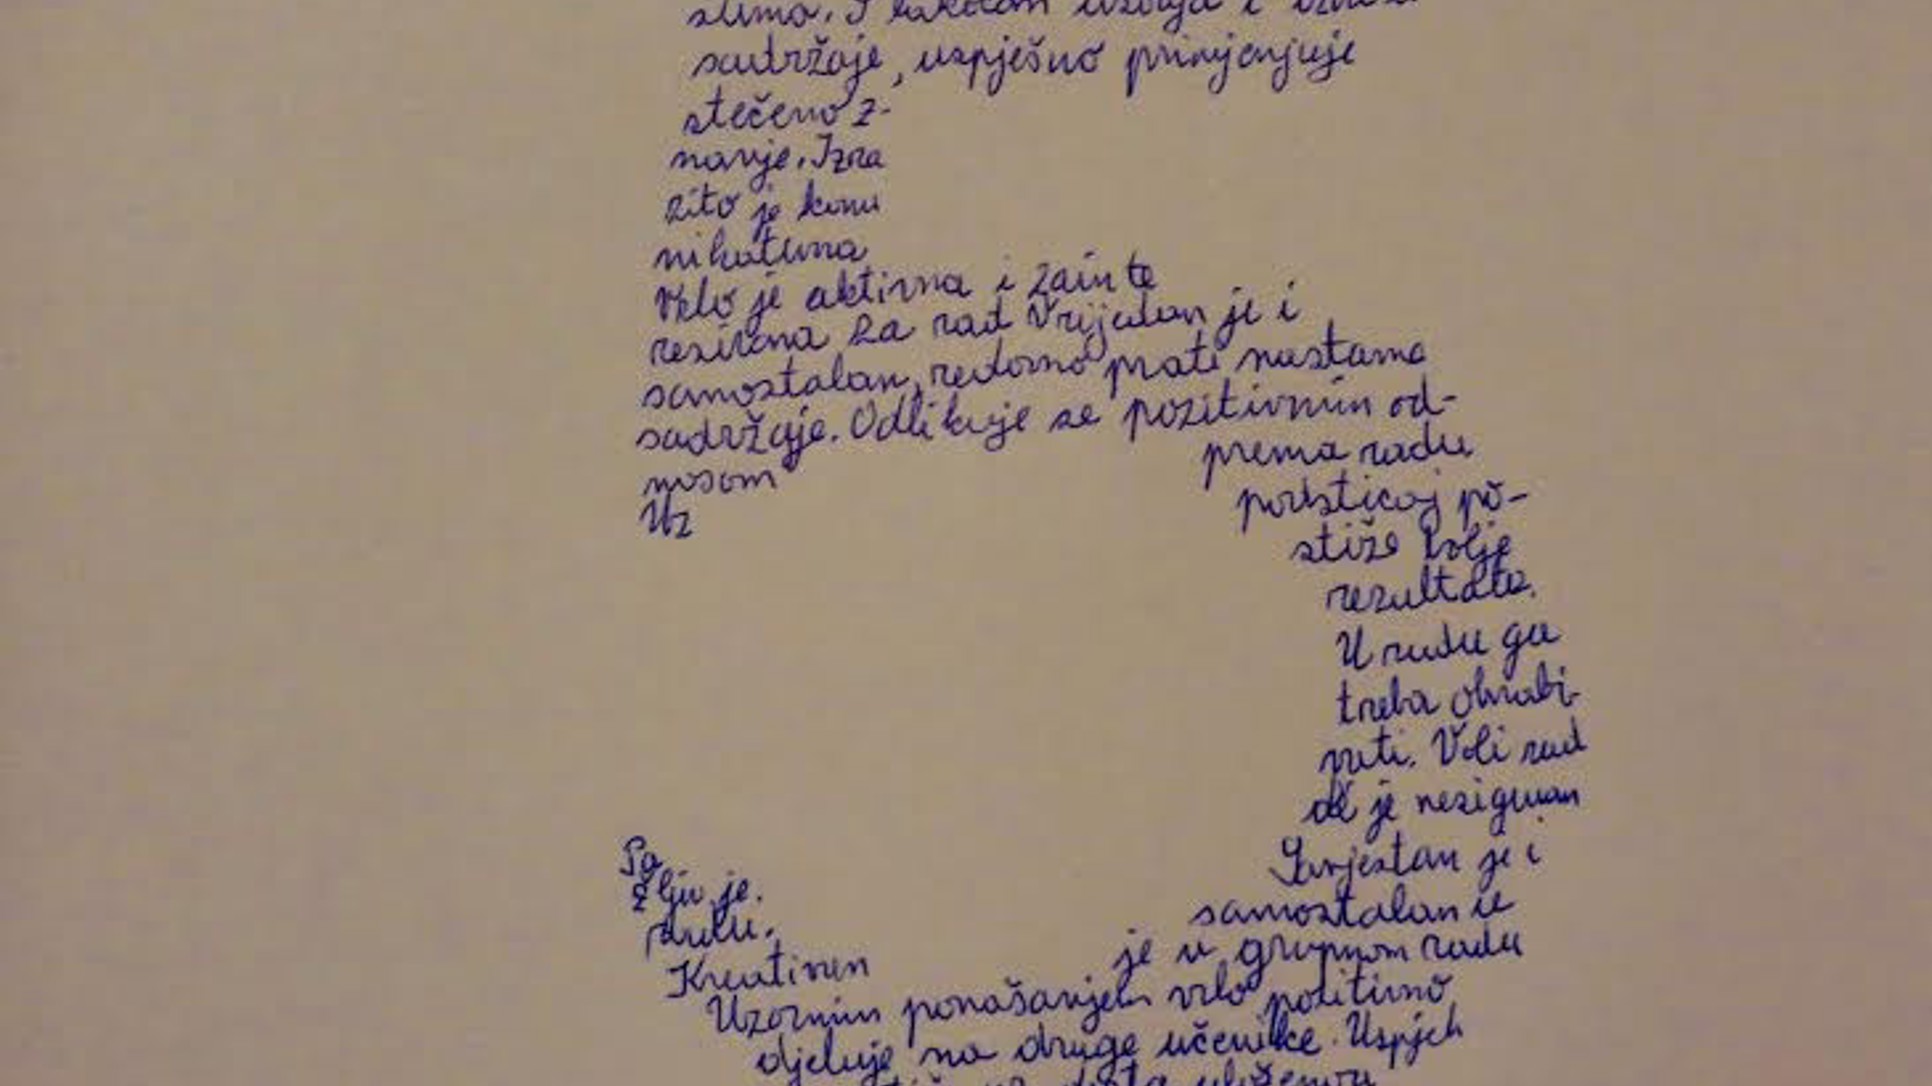 sadržaje, uspješno primjenjuje
stečeno z-
nanje. Izra
zito je komu
nikativna
Vrlo je aktivna i zainte
resirana za rad Vrijedan je i
samostalan, redovno prati nastavne
sadržaje. Odlikuje se pozitivnim od-
nosom prema radu
Uz podsticaj po-
stiže bolje
rezultate.
U radu ga
treba ohrabri-
vati. Voli rad
ali je nesiguran
Savjestan je i
samostalan je
Pa
žljiv je. je u grupnom radu
radu.
Kreativan
Uzornim ponašanjem vrlo pozitivno
djeluje na druge učenike. Uspjeh